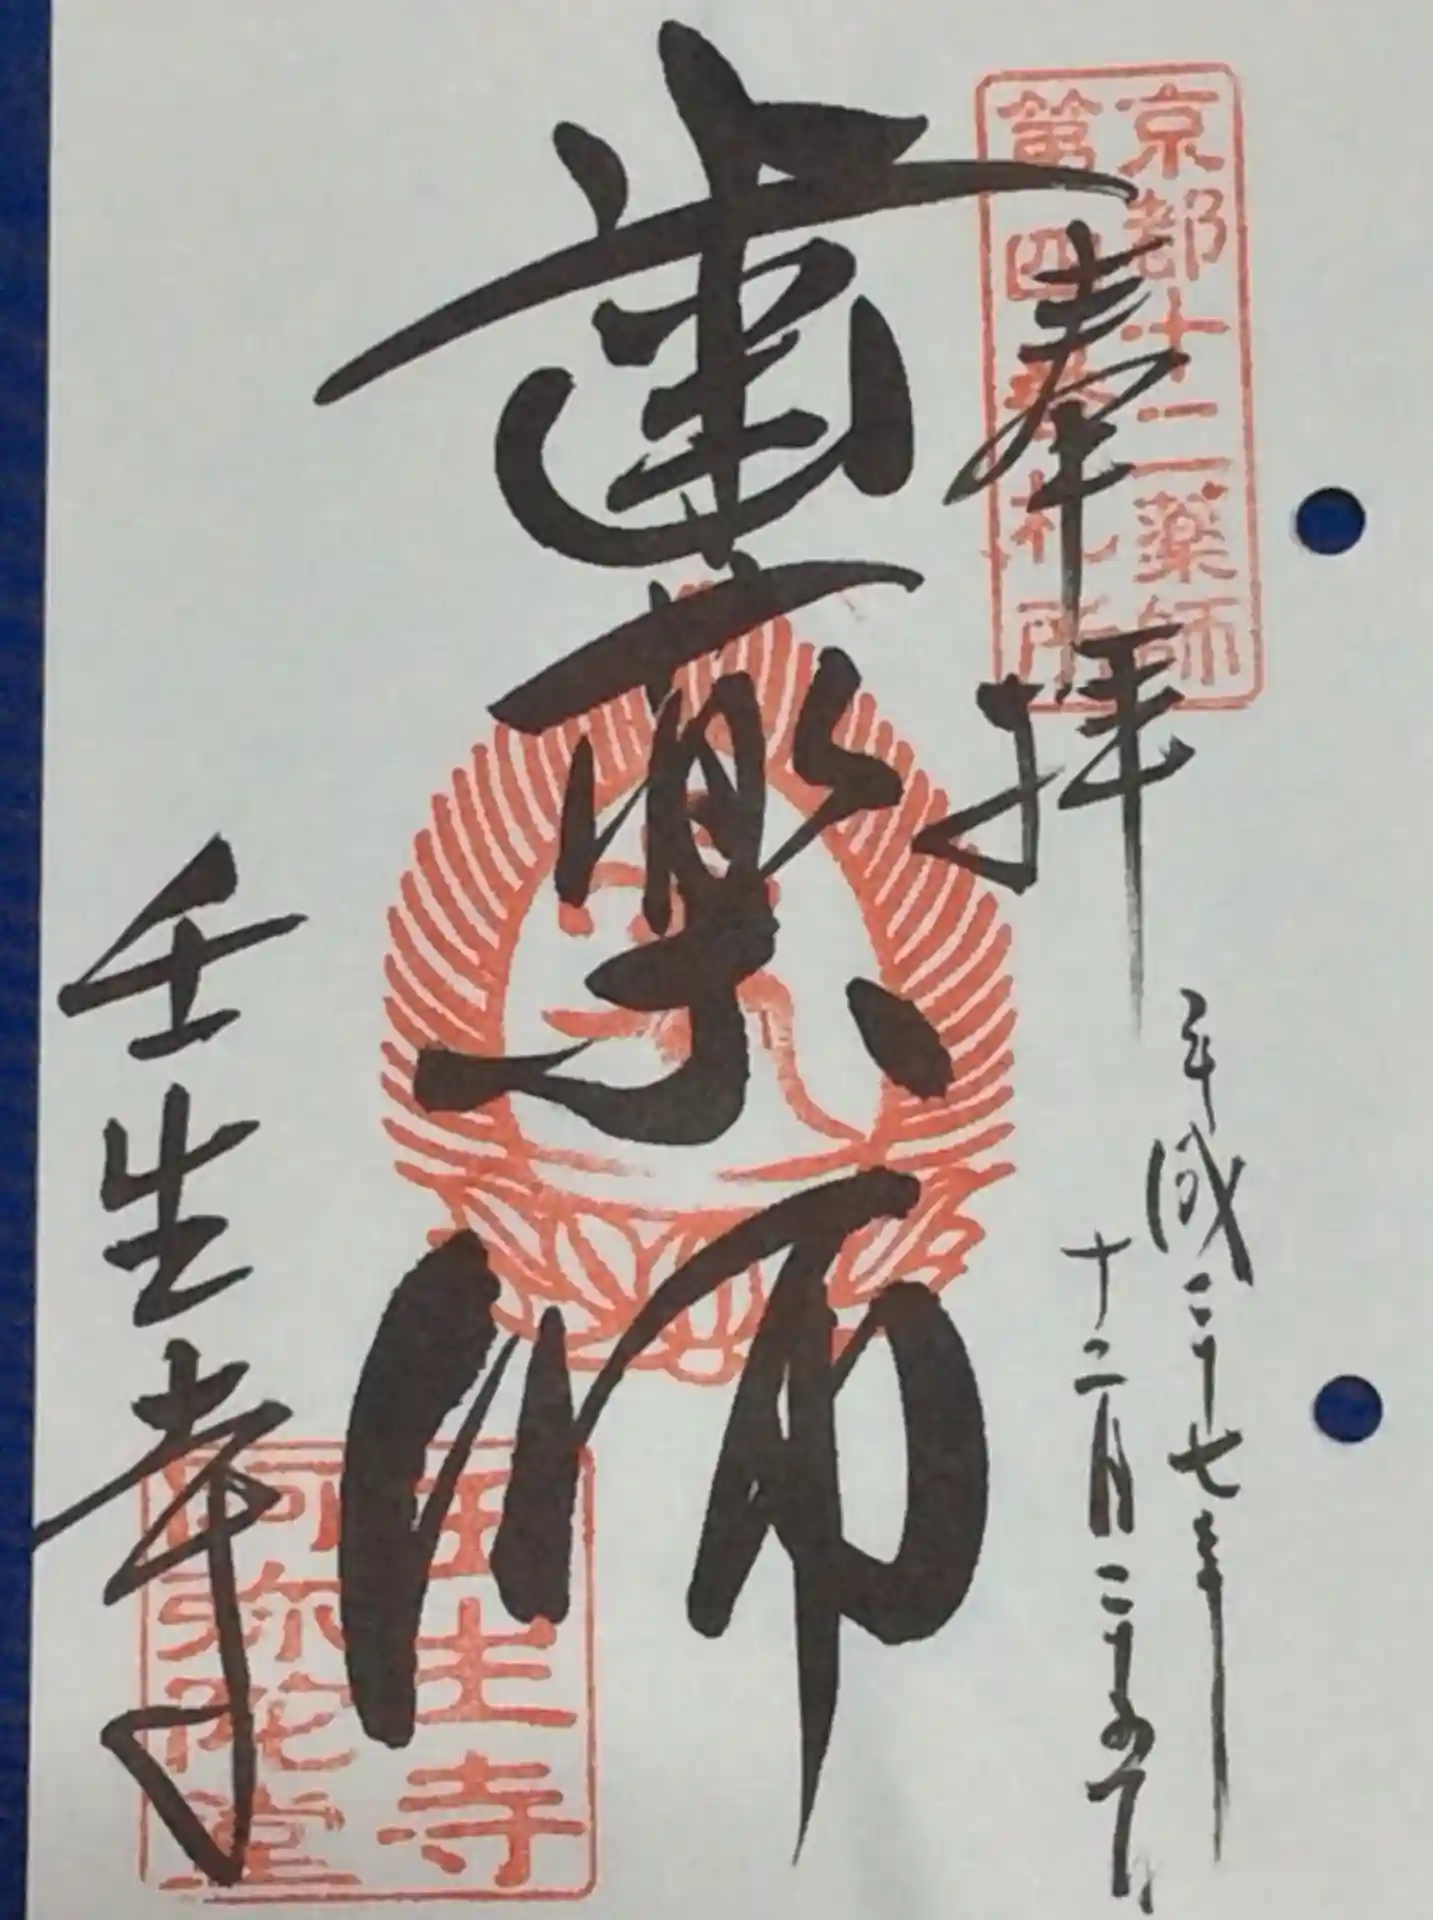 京都十二薬師
第四番札所
奉拝
平成二十七年
十二月二十日
歯薬師
壬生寺
壬生寺
阿弥陀堂